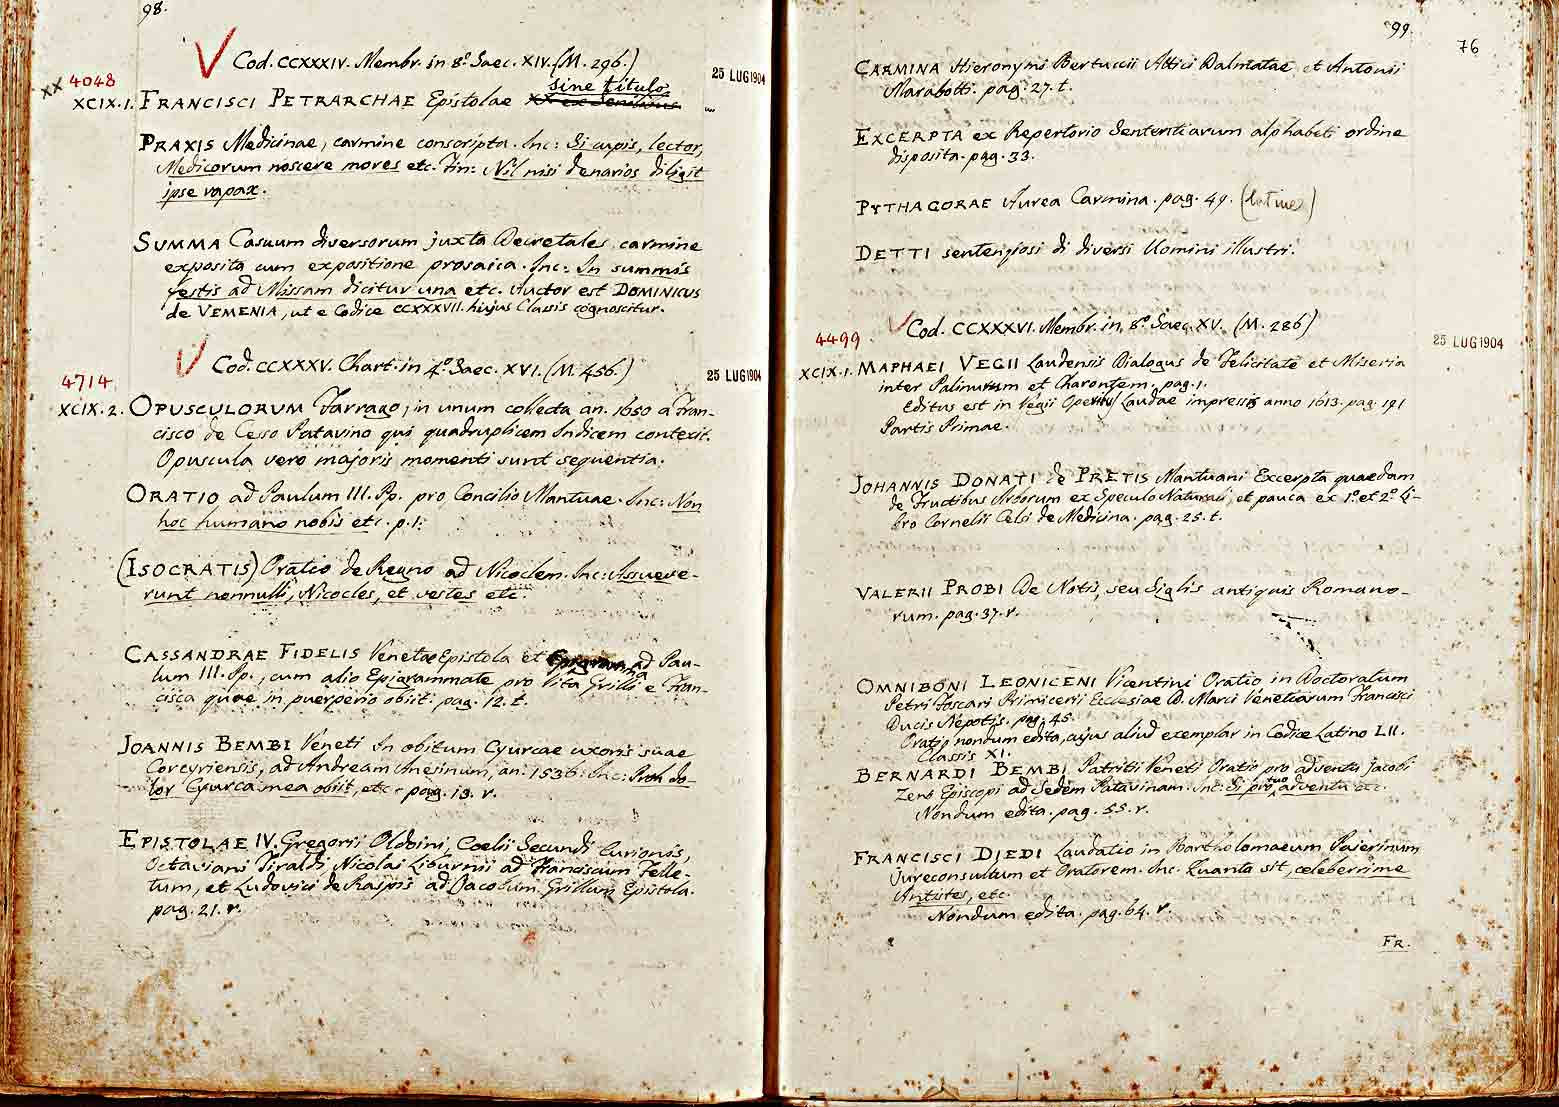 98.
V Cod. CCXXXIV. Membr. in 8º. Saec. XIV. (M. 296.)
25 LUG 1904
XX 4048
sine titulo.
XCIX. 1. FRANCISCI PETRARCHAE Epistolae XX ex Senilibus
PRAXIS Medicinae, carmine conscripta. Inc: Si cupis, lector,
Medicorum noscere mores etc. Fin: Nil nisi denarios diligit
ipse rapax.
SUMMA Casuum diversorum juxta Decretales, carmine
exposita cum expositione prosaica. Inc: In summis
festis ad Missam dicitur una etc. Auctor est DOMINICUS
de VEMENIA, ut e Codice CCXXXVII. hujus Classis cognoscitur.
V Cod. CCXXXV. Chart. in 4º. Saec. XVI. (M. 456.)
25 LUG 1904
4714
XCIX. 2. OPUSCULORUM Farrago, in unum collecta an. 1650 a Fran-
cisco de Cesso Patavino qui quadruplicem Indicem contexit.
Opuscula vero majoris momenti sunt sequentia.
ORATIO ad Paulum III. Pp. pro Concilio Mantuae. Inc: Non
hoc humano nobis etc. p. 1.
(ISOCRATIS) Oratio de Regno ad Nicoclem. Inc: Assueve-
runt nonnulli, Nicocles, et vestes etc.
CASSANDRAE FIDELIS Venetae Epistola et Epigramma ad Pau-
lum III. Pp., cum alio Epigrammate pro Vita Grilli e Fran-
cisca quae in puerperio obiit. pag. 12. t.
JOANNIS BEMBI Veneti In obitum Cyurcae uxoris suae
Corcyriensis, ad Andream Anesinum, an. 1536. Inc: Proh do-
lor Cyurca mea obiit, etc. pag. 13. r.
EPISTOLAE IV. Gregorii Oldoini, Coelii Secundi Curionis,
Octaviani Tiraldi, Nicolai Liburnii ad Franciscum Felle-
tum, et Ludovici de Raspis ad Jacobum Grillum Epistola.
pag. 21. r.
99.
76
CARMINA Hieronymi Bertuccii Attici Dalmatae, et Antonii
Marabotti. pag. 27. t.
EXCERPTA ex Repertorio Sententiarum alphabeti ordine
disposita. pag. 33.
PYTHAGORAE Aurea Carmina. pag. 49. (latine)
DETTI sentenziosi di diversi Uomini illustri.
V Cod. CCXXXVI. Membr. in 8º. Saec. XV. (M. 286)
25 LUG 1904
4499.
XCIX. 1. MAPHAEI VEGII Laudensis Dialogus de Felicitate et Miseria
inter Palinurum et Charontem. pag. 1.
Editus est in Vegii Operibus Laudae impressis anno 1613. pag. 191
Partis Primae.
JOHANNIS DONATI de PRETIS Mantuani Excerpta quaedam
de Fructibus Arborum ex Speculo Naturali, et pauca ex 1º. et 2º. Li-
bro Cornelii Celsi de Medicina. pag. 25. t.
VALERII PROBI De Notis, seu Siglis antiquis Romano-
rum. pag. 37. r.
OMNIBONI LEONICENI Vicentini Oratio in Doctoratum
Petri Foscari Primicerii Ecclesiae D. Marci Venetiarum Francisci
Ducis Nepotis. pag. 45.
Oratio nondum edita, cujus aliud exemplar in Codice Latino LII.
Classis XI.
BERNARDI BEMBI Patritii Veneti Oratio pro adventu Jacobi
Zeno Episcopi ad Sedem Patavinam. Inc: Si pro tuo adventu etc.
Nondum edita. pag. 55. r.
FRANCISCI DIEDI Laudatio in Bartholomaeum Pajerinum
Jureconsultum et Oratorem. Inc. Quanta sit, celeberrime
Antistes, etc.
Nondum edita. pag. 64. r.
FR.